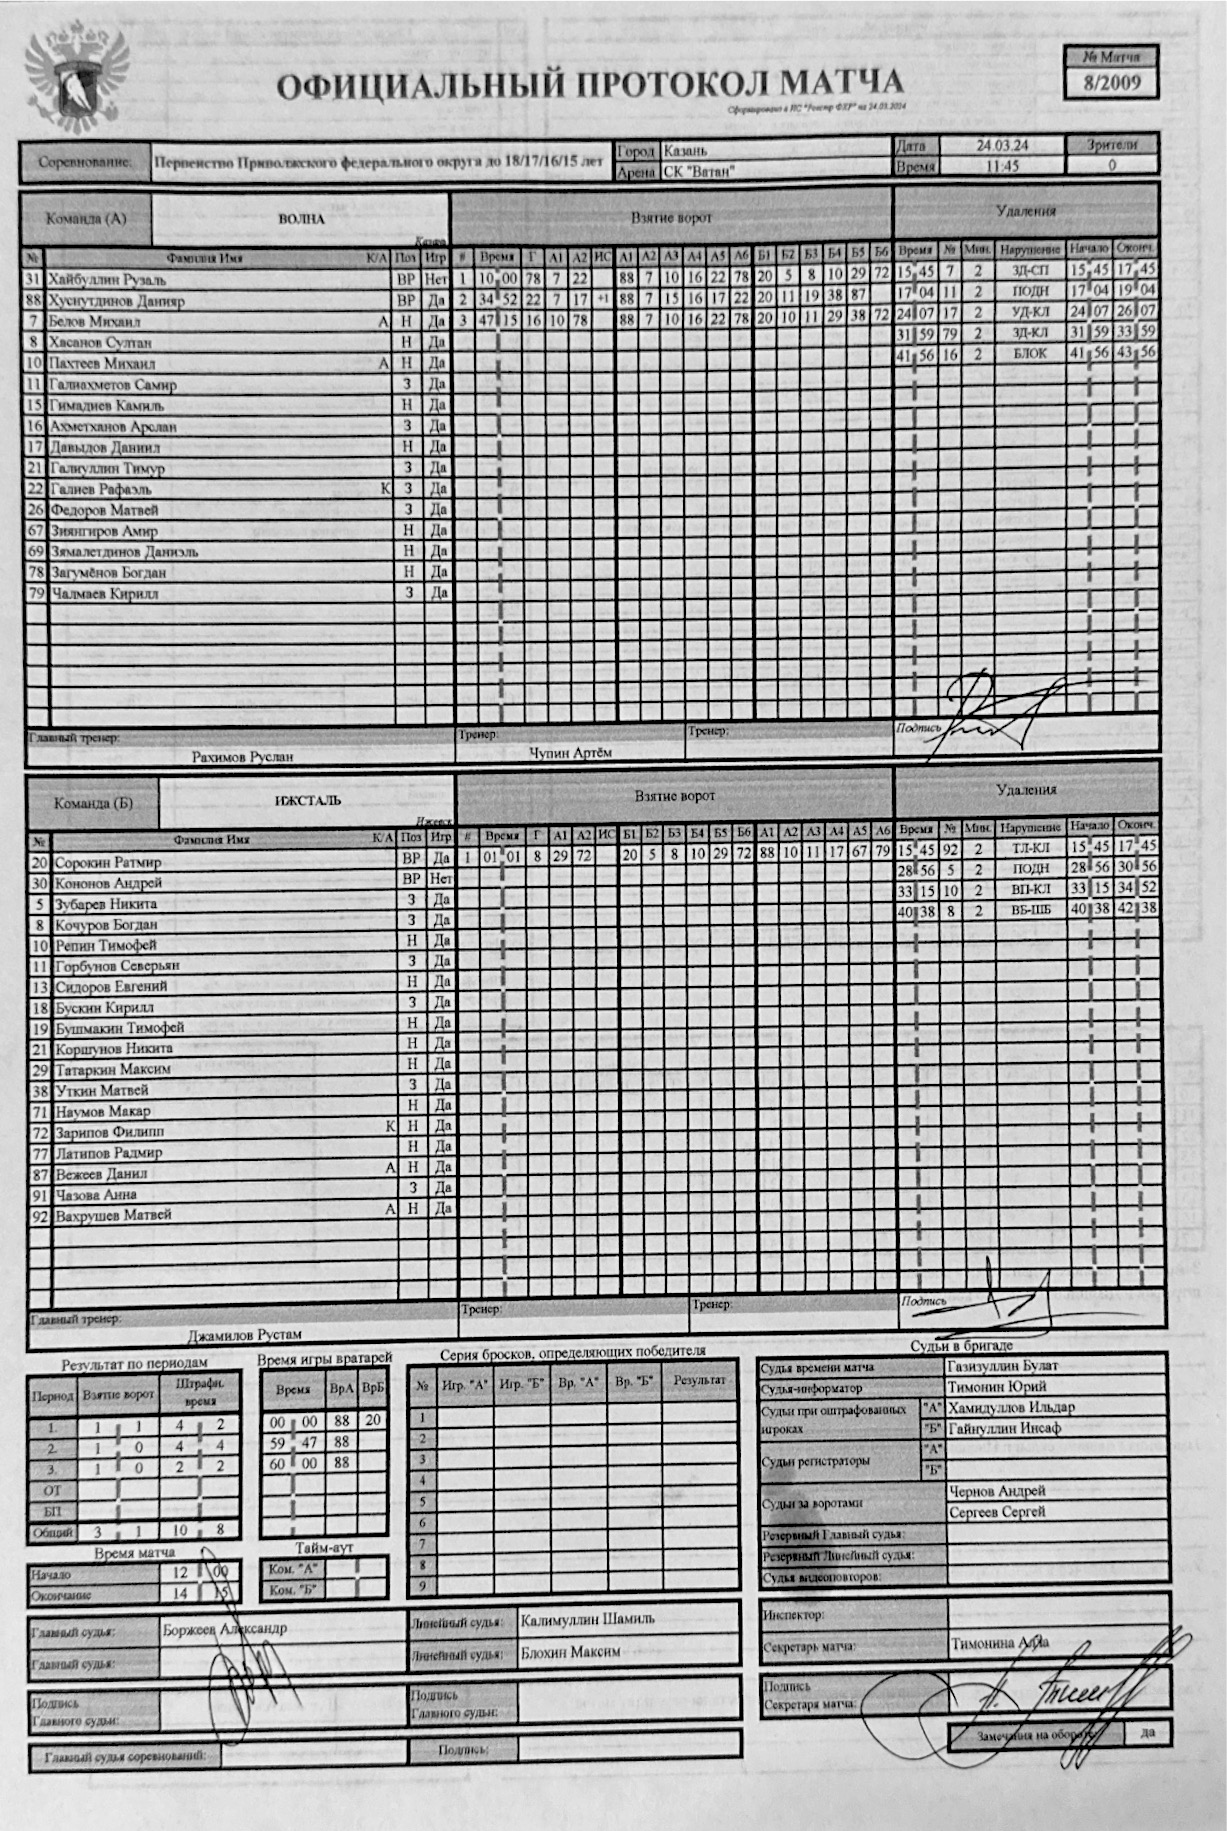 № Матча
8/2009
ОФИЦИАЛЬНЫЙ ПРОТОКОЛ МАТЧА
Сформирован в ИС "Реестр ФХР" на 24.03.2024
Соревнование: Первенство Приволжского федерального округа до 18/17/16/15 лет Город Казань Дата 24.03.24 Зрители
Арена СК "Ватан" Время 11:45 0
Команда (А) ВОЛНА Казань Взятие ворот Удаления
№ Фамилия Имя К/А Поз Игр # Время Г А1 А2 ИС А1 А2 А3 А4 А5 А6 Б1 Б2 Б3 Б4 Б5 Б6 Время № Мин. Нарушение Начало Оконч.
31 Хайбуллин Рузаль ВР Нет 1 10 00 78 7 22 88 7 10 16 22 78 20 5 8 10 29 72 15 45 7 2 ЗД-СП 15 45 17 45
88 Хуснутдинов Данияр ВР Да 2 34 52 22 7 17 +1 88 7 15 16 17 22 20 11 19 38 87 17 04 11 2 ПОДН 17 04 19 04
7 Белов Михаил А Н Да 3 47 15 16 10 78 88 7 10 16 22 78 20 10 11 29 38 72 24 07 17 2 УД-КЛ 24 07 26 07
8 Хасанов Султан Н Да 31 59 79 2 ЗД-КЛ 31 59 33 59
10 Пахтеев Михаил А Н Да 41 56 16 2 БЛОК 41 56 43 56
11 Галиахметов Самир З Да
15 Гимадиев Камиль Н Да
16 Ахметханов Арслан З Да
17 Давыдов Даниил Н Да
21 Галиуллин Тимур З Да
22 Галиев Рафаэль К З Да
26 Федоров Матвей З Да
67 Зиянгиров Амир Н Да
69 Зямалетдинов Даниэль Н Да
78 Загумёнов Богдан Н Да
79 Чалмаев Кирилл З Да
Главный тренер: Рахимов Руслан Тренер: Чупин Артём Тренер: Подпись
Команда (Б) ИЖСТАЛЬ Ижевск Взятие ворот Удаления
№ Фамилия Имя К/А Поз Игр # Время Г А1 А2 ИС Б1 Б2 Б3 Б4 Б5 Б6 А1 А2 А3 А4 А5 А6 Время № Мин. Нарушение Начало Оконч.
20 Сорокин Ратмир ВР Да 1 01 01 8 29 72 20 5 8 10 29 72 88 10 11 17 67 79 15 45 92 2 ТЛ-КЛ 15 45 17 45
30 Кононов Андрей ВР Нет 28 56 5 2 ПОДН 28 56 30 56
5 Зубарев Никита З Да 33 15 10 2 ВП-КЛ 33 15 34 52
8 Кочуров Богдан З Да 40 38 8 2 ВБ-ШБ 40 38 42 38
10 Репин Тимофей Н Да
11 Горбунов Северьян З Да
13 Сидоров Евгений Н Да
18 Бускин Кирилл З Да
19 Бушмакин Тимофей Н Да
21 Коршунов Никита Н Да
29 Татаркин Максим Н Да
38 Уткин Матвей З Да
71 Наумов Макар Н Да
72 Зарипов Филипп К Н Да
77 Латипов Радмир Н Да
87 Вежеев Данил А Н Да
91 Чазова Анна З Да
92 Вахрушев Матвей А Н Да
Главный тренер: Джамилов Рустам Тренер: Тренер: Подпись
Результат по периодам
Период Взятие ворот Штрафн. время
1. 1 1 4 2
2. 1 0 4 4
3. 1 0 2 2
ОТ
БП
Общий 3 1 10 8
Время матча
Начало 12 00
Окончание 14 15
Время игры вратарей
Время ВрА ВрБ
00 00 88 20
59 47 88
60 00 88
Тайм-аут
Ком. "А"
Ком. "Б"
Серия бросков, определяющих победителя
№ Игр. "А" Игр. "Б" Вр. "А" Вр. "Б" Результат
1
2
3
4
5
6
7
8
9
Судьи в бригаде
Судья времени матча Газизуллин Булат
Судья-информатор Тимонин Юрий
Судьи при оштрафованных игроках "А" Хамидуллов Ильдар
"Б" Гайнуллин Инсаф
Судьи регистраторы "А"
"Б"
Судьи за воротами Чернов Андрей
Сергеев Сергей
Резервный Главный судья:
Резервный Линейный судья:
Судья видеоповторов:
Главный судья: Боржеев Александр Линейный судья: Калимуллин Шамиль
Главный судья: Линейный судья: Блохин Максим
Инспектор:
Секретарь матча: Тимонина Алла
Подпись Главного судьи: Подпись Главного судьи:
Подпись Секретаря матча:
Замечания на обороте: да
Главный судья соревнований: Подпись: